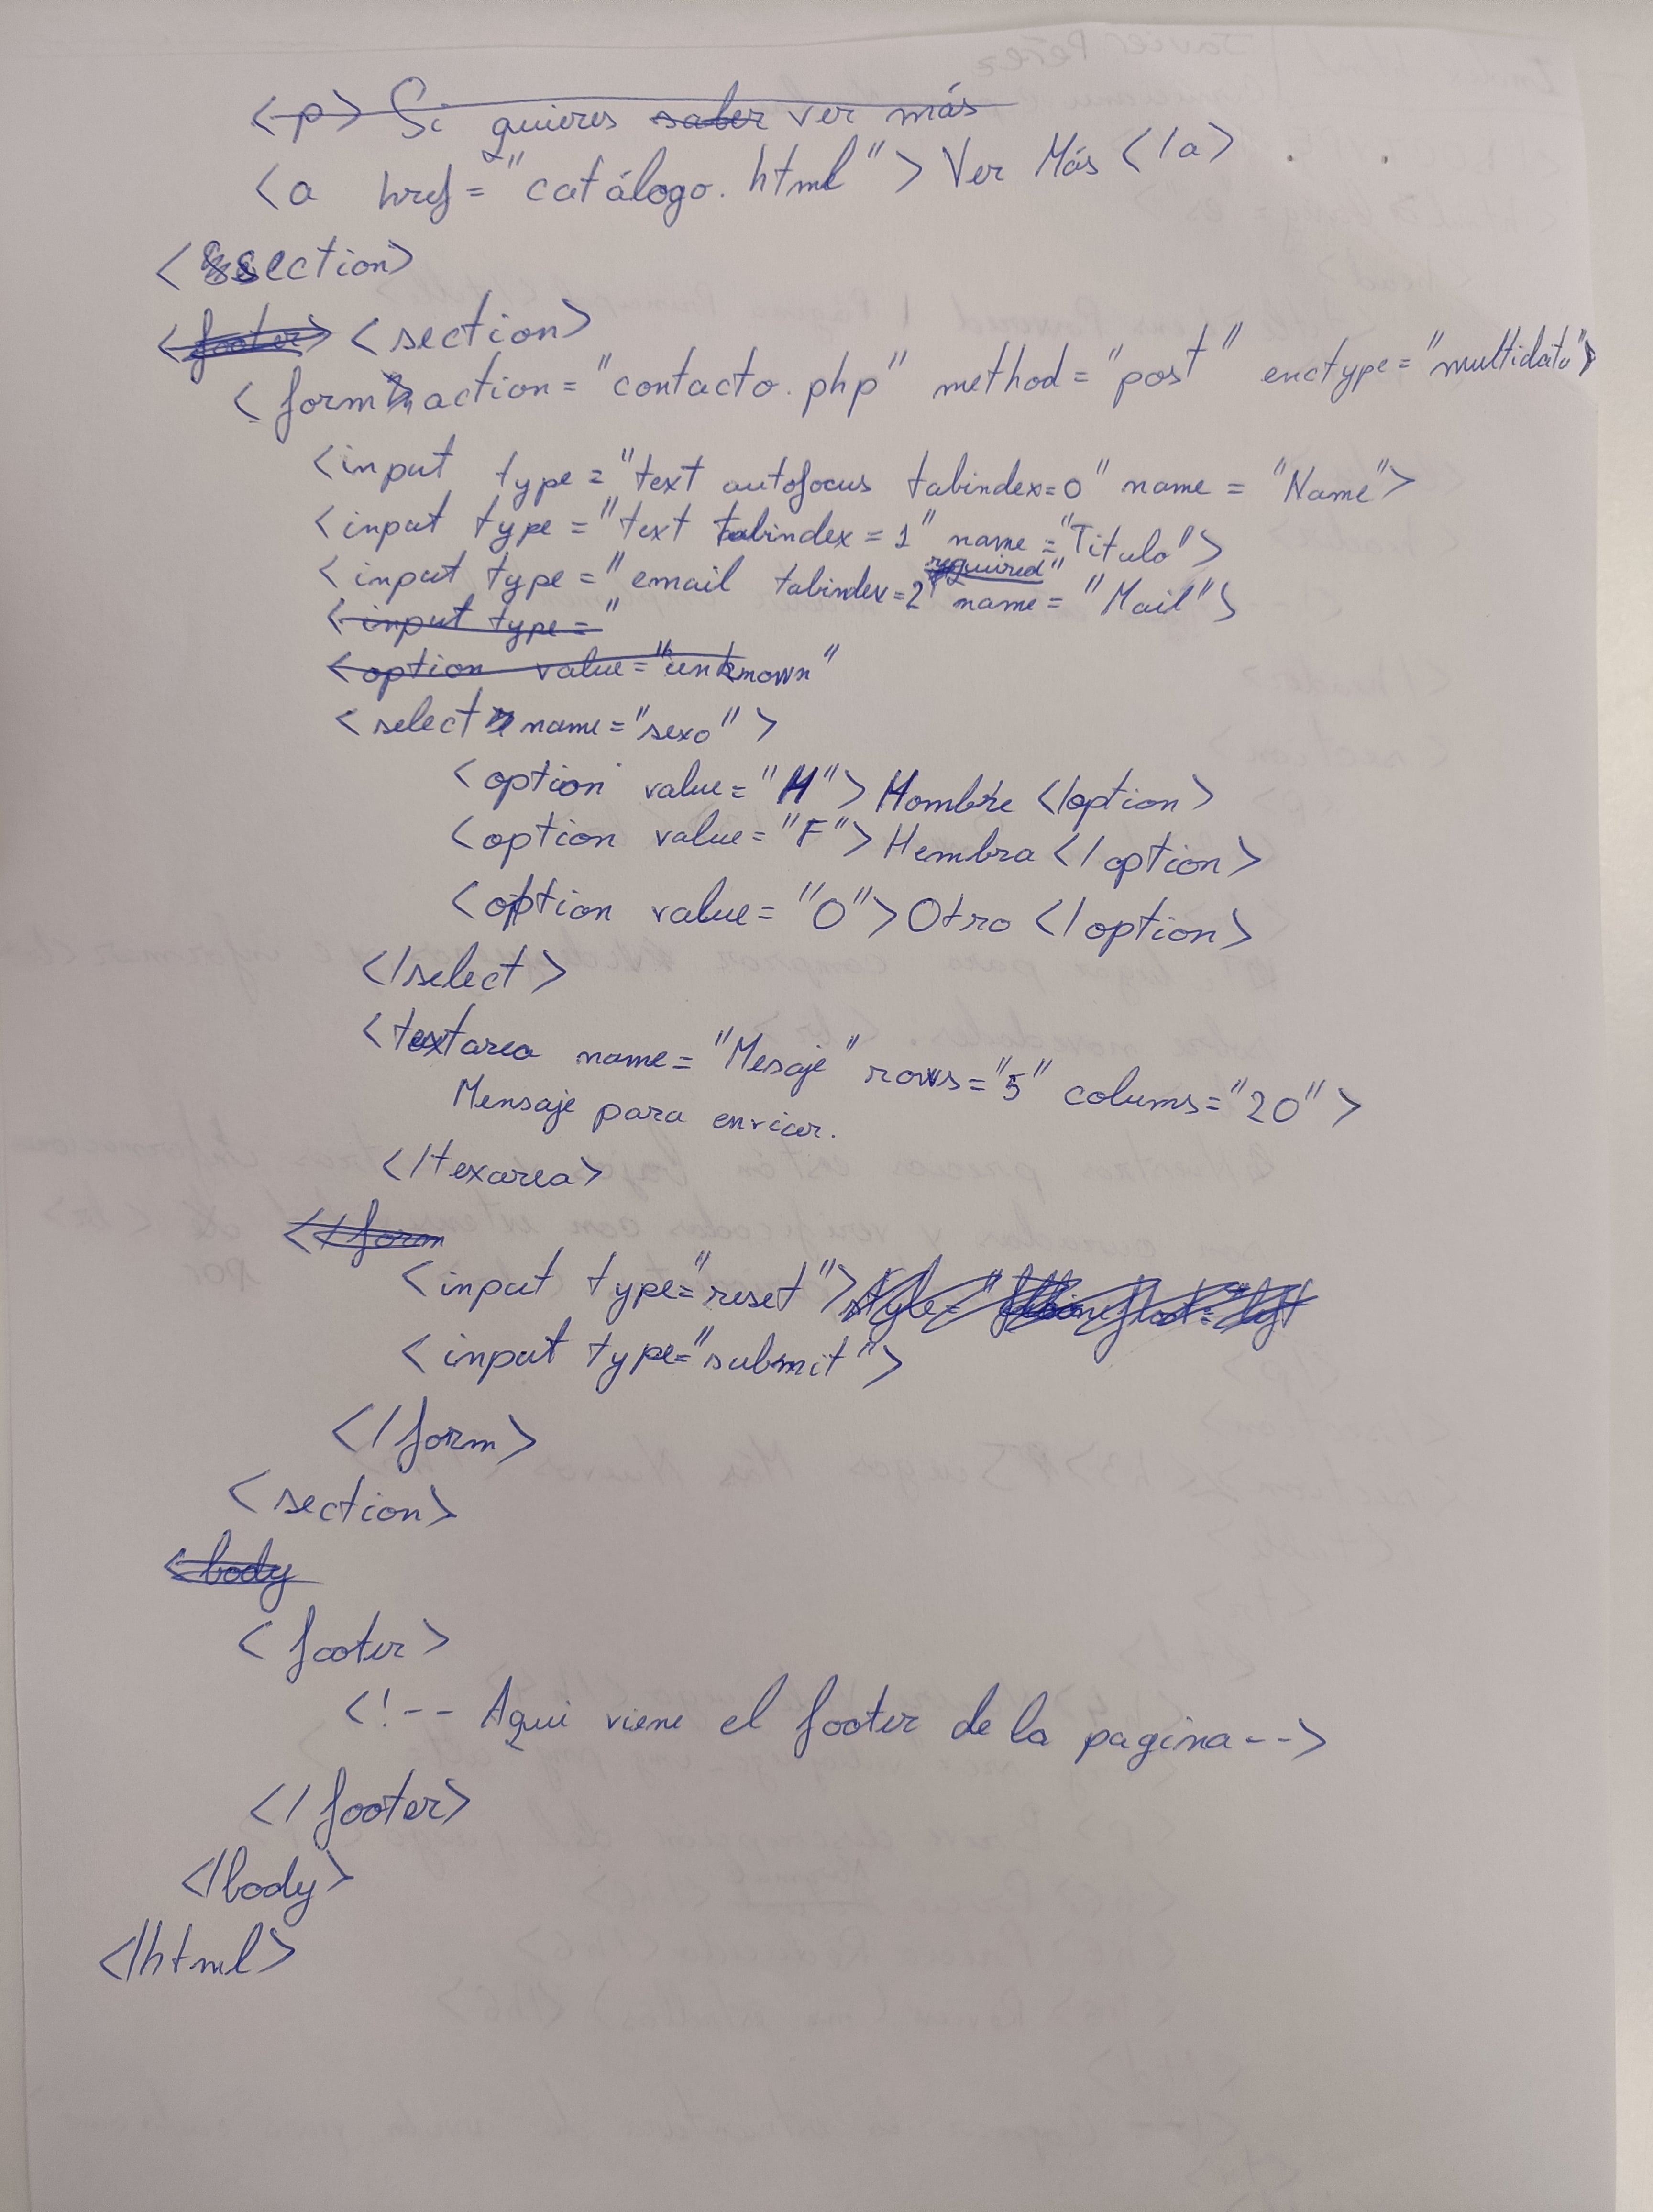 <p> Si quieres saber ver más
<a href="catálogo.html"> Ver Más </a>
<section>
<footer> <section>
<form action="contacto.php" method="post" enctype="multidata">
<input type="text autofocus tabindex=0" name="Name">
<input type="text tabindex=1" name="Titulo">
required"
<input type="email tabindex=2" name="Mail">
<input type="
<option value="unknown"
<select name="sexo">
<option value="H">Hombre </option>
<option value="F">Hembra </option>
<option value="O">Otro </option>
</select>
<textarea name="Mesaje" rows="5" colums="20">
Mensaje para enviar.
</texarea>
</form
<input type="reset"> style="
<input type="submit">
</form>
<section>
<body
<footer>
<!-- Aqui viene el footer de la pagina-->
</footer>
</body>
</html>